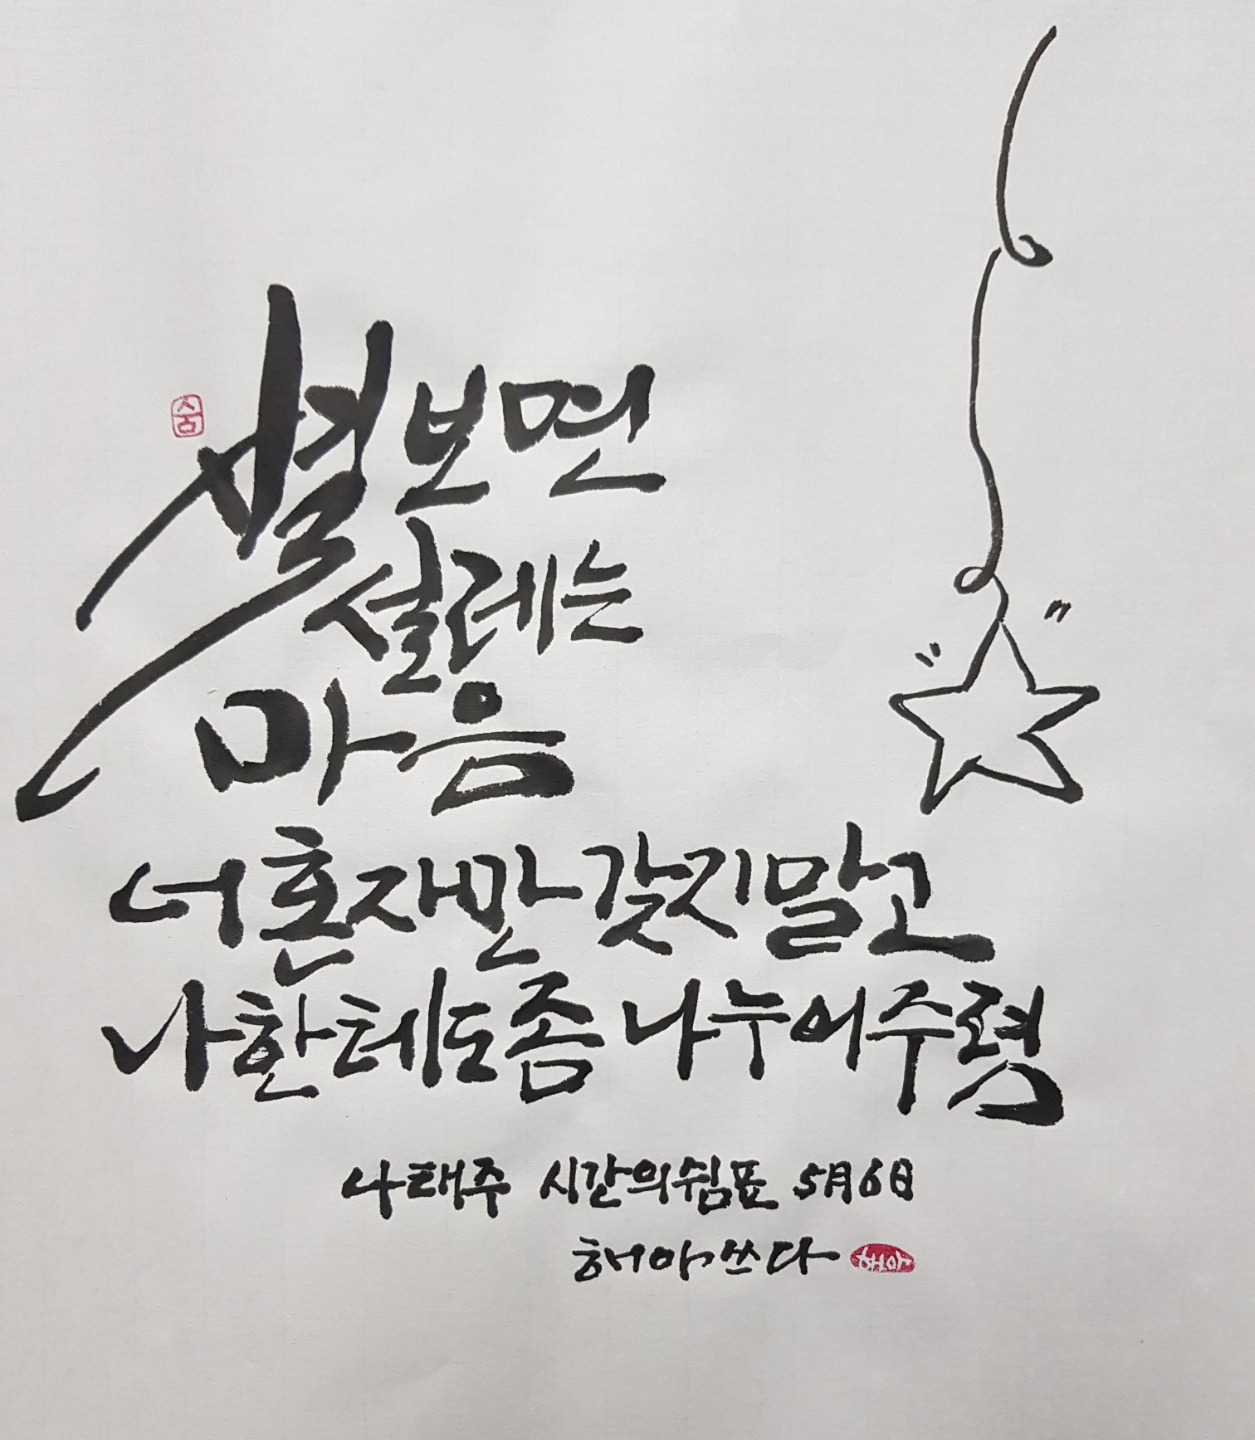 별 보면
설레는
마음
너 혼자만 갖지 말고
나한테도 좀 나누어 주렴
나태주 시간의쉼표 5月6日
해아쓰다 해아
숨